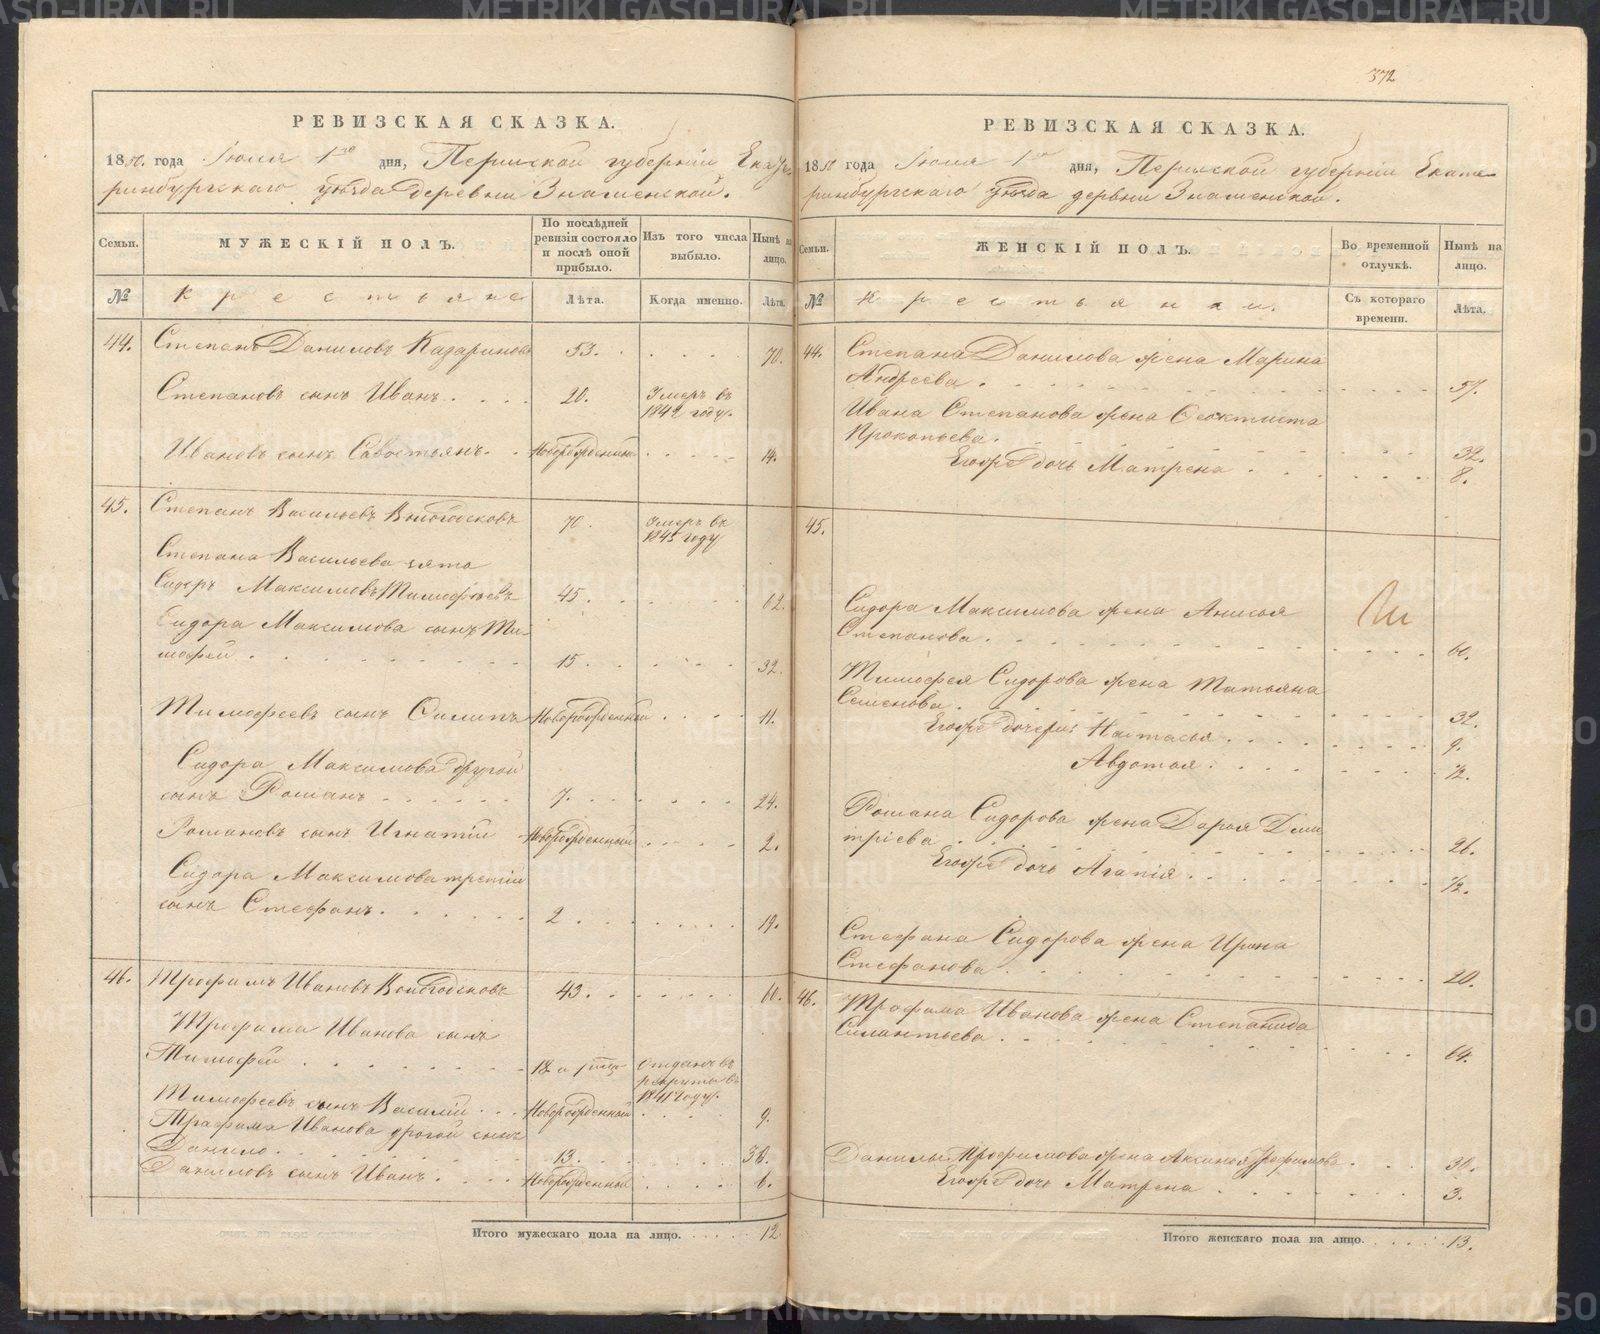 372
РЕВИЗСКАЯ СКАЗКА.
1850. года Іюля 1го дня, Пермской губерніи Екате-
ринбургскаго уѣзда деревни Знаменской.
Семьи. МУЖЕСКІЙ ПОЛЪ. По послѣдней ревизіи состояло и послѣ оной прибыло. Изъ того числа выбыло. Нынѣ на лицо.
№ Крестьяне Лѣта. Когда именно. Лѣта.
44. Степанъ Даниловъ Кадариновъ 53. 70.
Степановъ сынъ Иванъ 20. Умеръ въ
1842 году.
Ивановъ сынъ Савостьянъ Новорожденный 14.
45. Степанъ Васильевъ Вологодсковъ 70. Умеръ въ
1845 году
Степана Васильева зять
Сидоръ Максимовъ Тимофѣевъ 45. 62.
Сидора Максимова сынъ Ти-
мофей 15. 32.
Тимофеевъ сынъ Филипъ Новорожденный 11.
Сидора Максимова другой
сынъ Романъ 7. 24.
Романовъ сынъ Игнатій Новорожденный 2.
Сидора Максимова третій
сынъ Стефанъ. 2 19.
46. Трофимъ Ивановъ Вологодсковъ 43. 60.
Трофима Иванова сынъ
Тимофей 18 Отданъ въ
рекруты въ
1841 году.
Тимофеевъ сынъ Василій Новорожденный 9.
Трафима Иванова другой сынъ
Данило. 13. 30.
Даниловъ сынъ Иванъ. Новорожденный 6.
Итого мужескаго пола на лицо. 12
РЕВИЗСКАЯ СКАЗКА.
1850 года Іюля 1го дня, Пермской губерніи Екате-
ринбургскаго уѣзда дервни Знаменской.
Семьи. ЖЕНСКІЙ ПОЛЪ. Во временной отлучкѣ. Нынѣ на лицо.
№ Крестьянки. Съ котораго времени. Лѣта.
44. Степана Данилова жена Марина
Андреева. 57.
Ивана Степанова жена Феоктиста
Прокопьева. 32.
Егожъ дочь Матрена 8.
45.
Сидора Максимова жена Анисья
Степанова. 60.
Тимофея Сидорова жена Татьяна
Семенова. 32.
Егожъ дочери: Настасья 9.
Авдотья. 1/2.
Романа Сидорова жена Дарья Дми
тріева 26.
Егожъ дочь Агапія 1/2.
Стефана Сидорова жена Ирина
Стефанова 20.
46. Трофима Иванова жена Степанида
Силантьева 64.
Данилы Трофимова жена Аксинья Трофимова 30.
Егожъ дочь Матрена 3.
Итого женскаго пола на лицо. 13.
METRIKI.GASO-URAL.RU